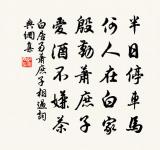 半日停車馬
何人在白家
殷勤蕭庶子
愛酒不嫌茶
白居易蕭庶子相過詞